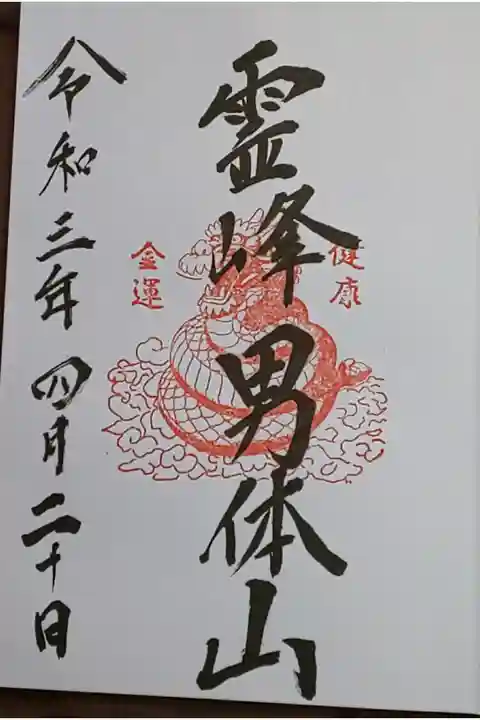 霊峰男体山
健康
金運
令和三年四月二十日